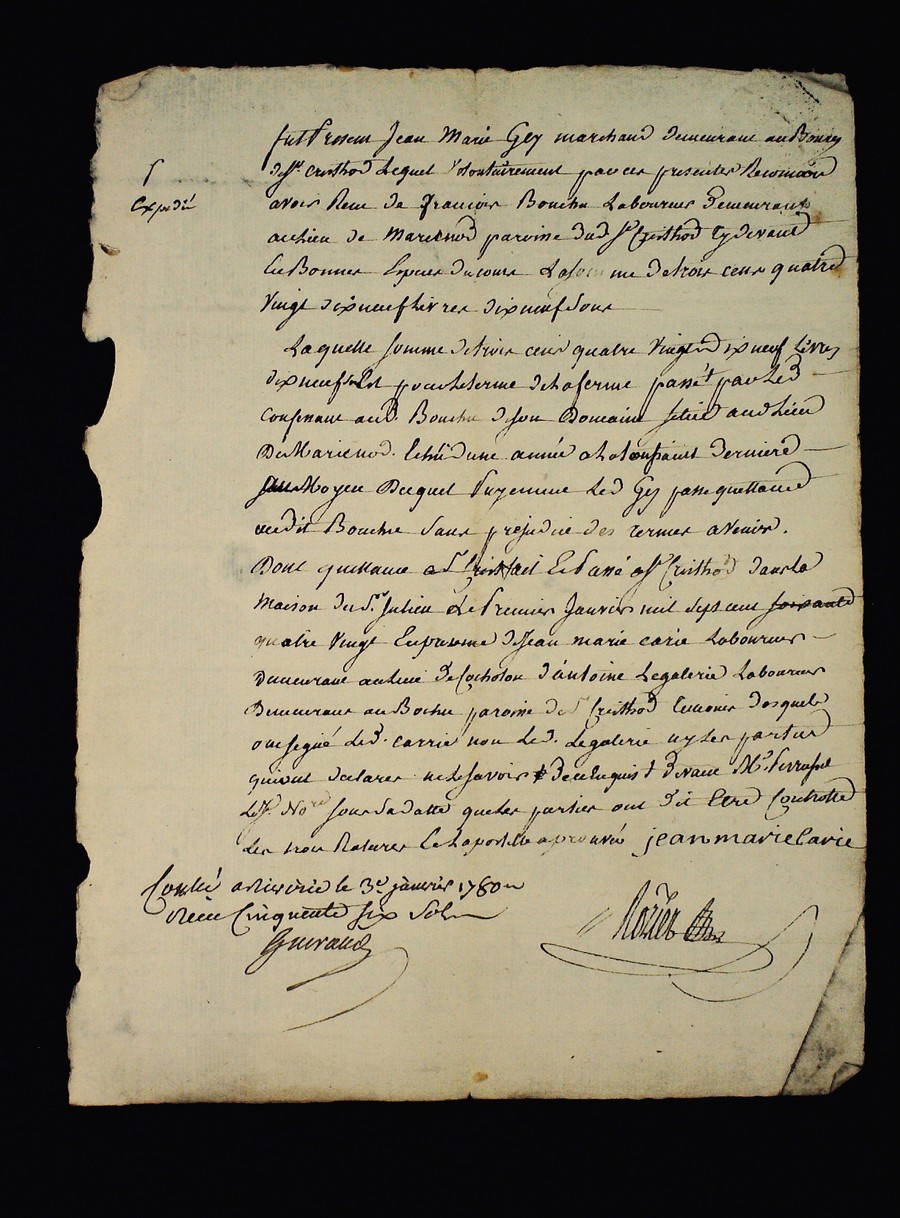 fut Present Jean Marie Gey marchand demeurant au Bourg
de St. Cristhod Lequel Volontairement par ces presentes Reconnoit
expedié
avoir Receu de françois Bouchu Laboureur Demeurant
au lieu de Marcenod paroisse dud St Cristhod Cy devant
En Bonnes Especes du cours La somme de trois cens quatre
Vingt dix neuf Livres dix neuf sous
Laquelle somme de trois cens quatre Vingt dix neuf Livres
dix neuf sols Est pour le terme de la ferme passé par Led
Confessant aud. Bouchu de son Domaine situé aud Lieu
De Marcenod. Echû d'une année a la toussaint derniere
Moyen Dequel Payement Led Gey passe quittance
audit Bouchu sans prejudice des termes avenir.
Dont quittance fait Et Passé a St Cristhod dans la
maison du Sr. Julien Le Premier Janvier mil sept cent soixante
quatre Vingt En presence de Jean marie carie Laboureur
Demeurant au Lieu de Cocholon d'antoine Legalerie Laboureur
Demeurant au Bochu paroisse de St Cristhod temoins desquels
ont signé Led. carrie non Led. Legalerie ny les parties
qui ont declarer ne le savoir de ce Enquis devant Me.
Les. Nore sous la datte que les parties ont dit Etre Controllé
Les trois Ratures Et L'apostille aprouvée jean marie Carie
Conlé a le 3e janvier 1780
Receu Cinquante six Sols
Guiraud